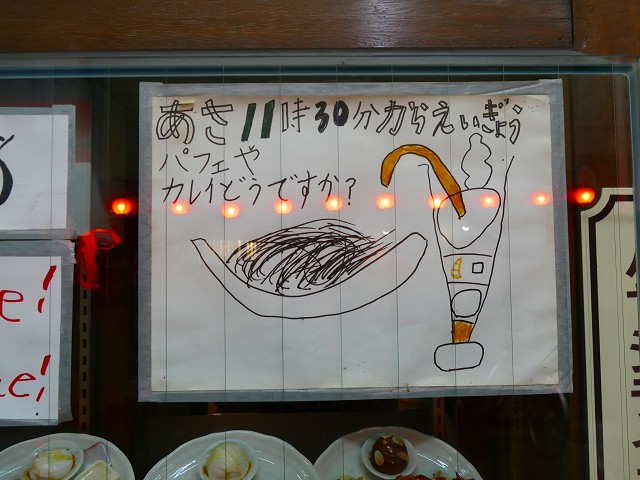 あさ11時30分からえいぎょう
パフェや
カレイどうですか?
e!
e!